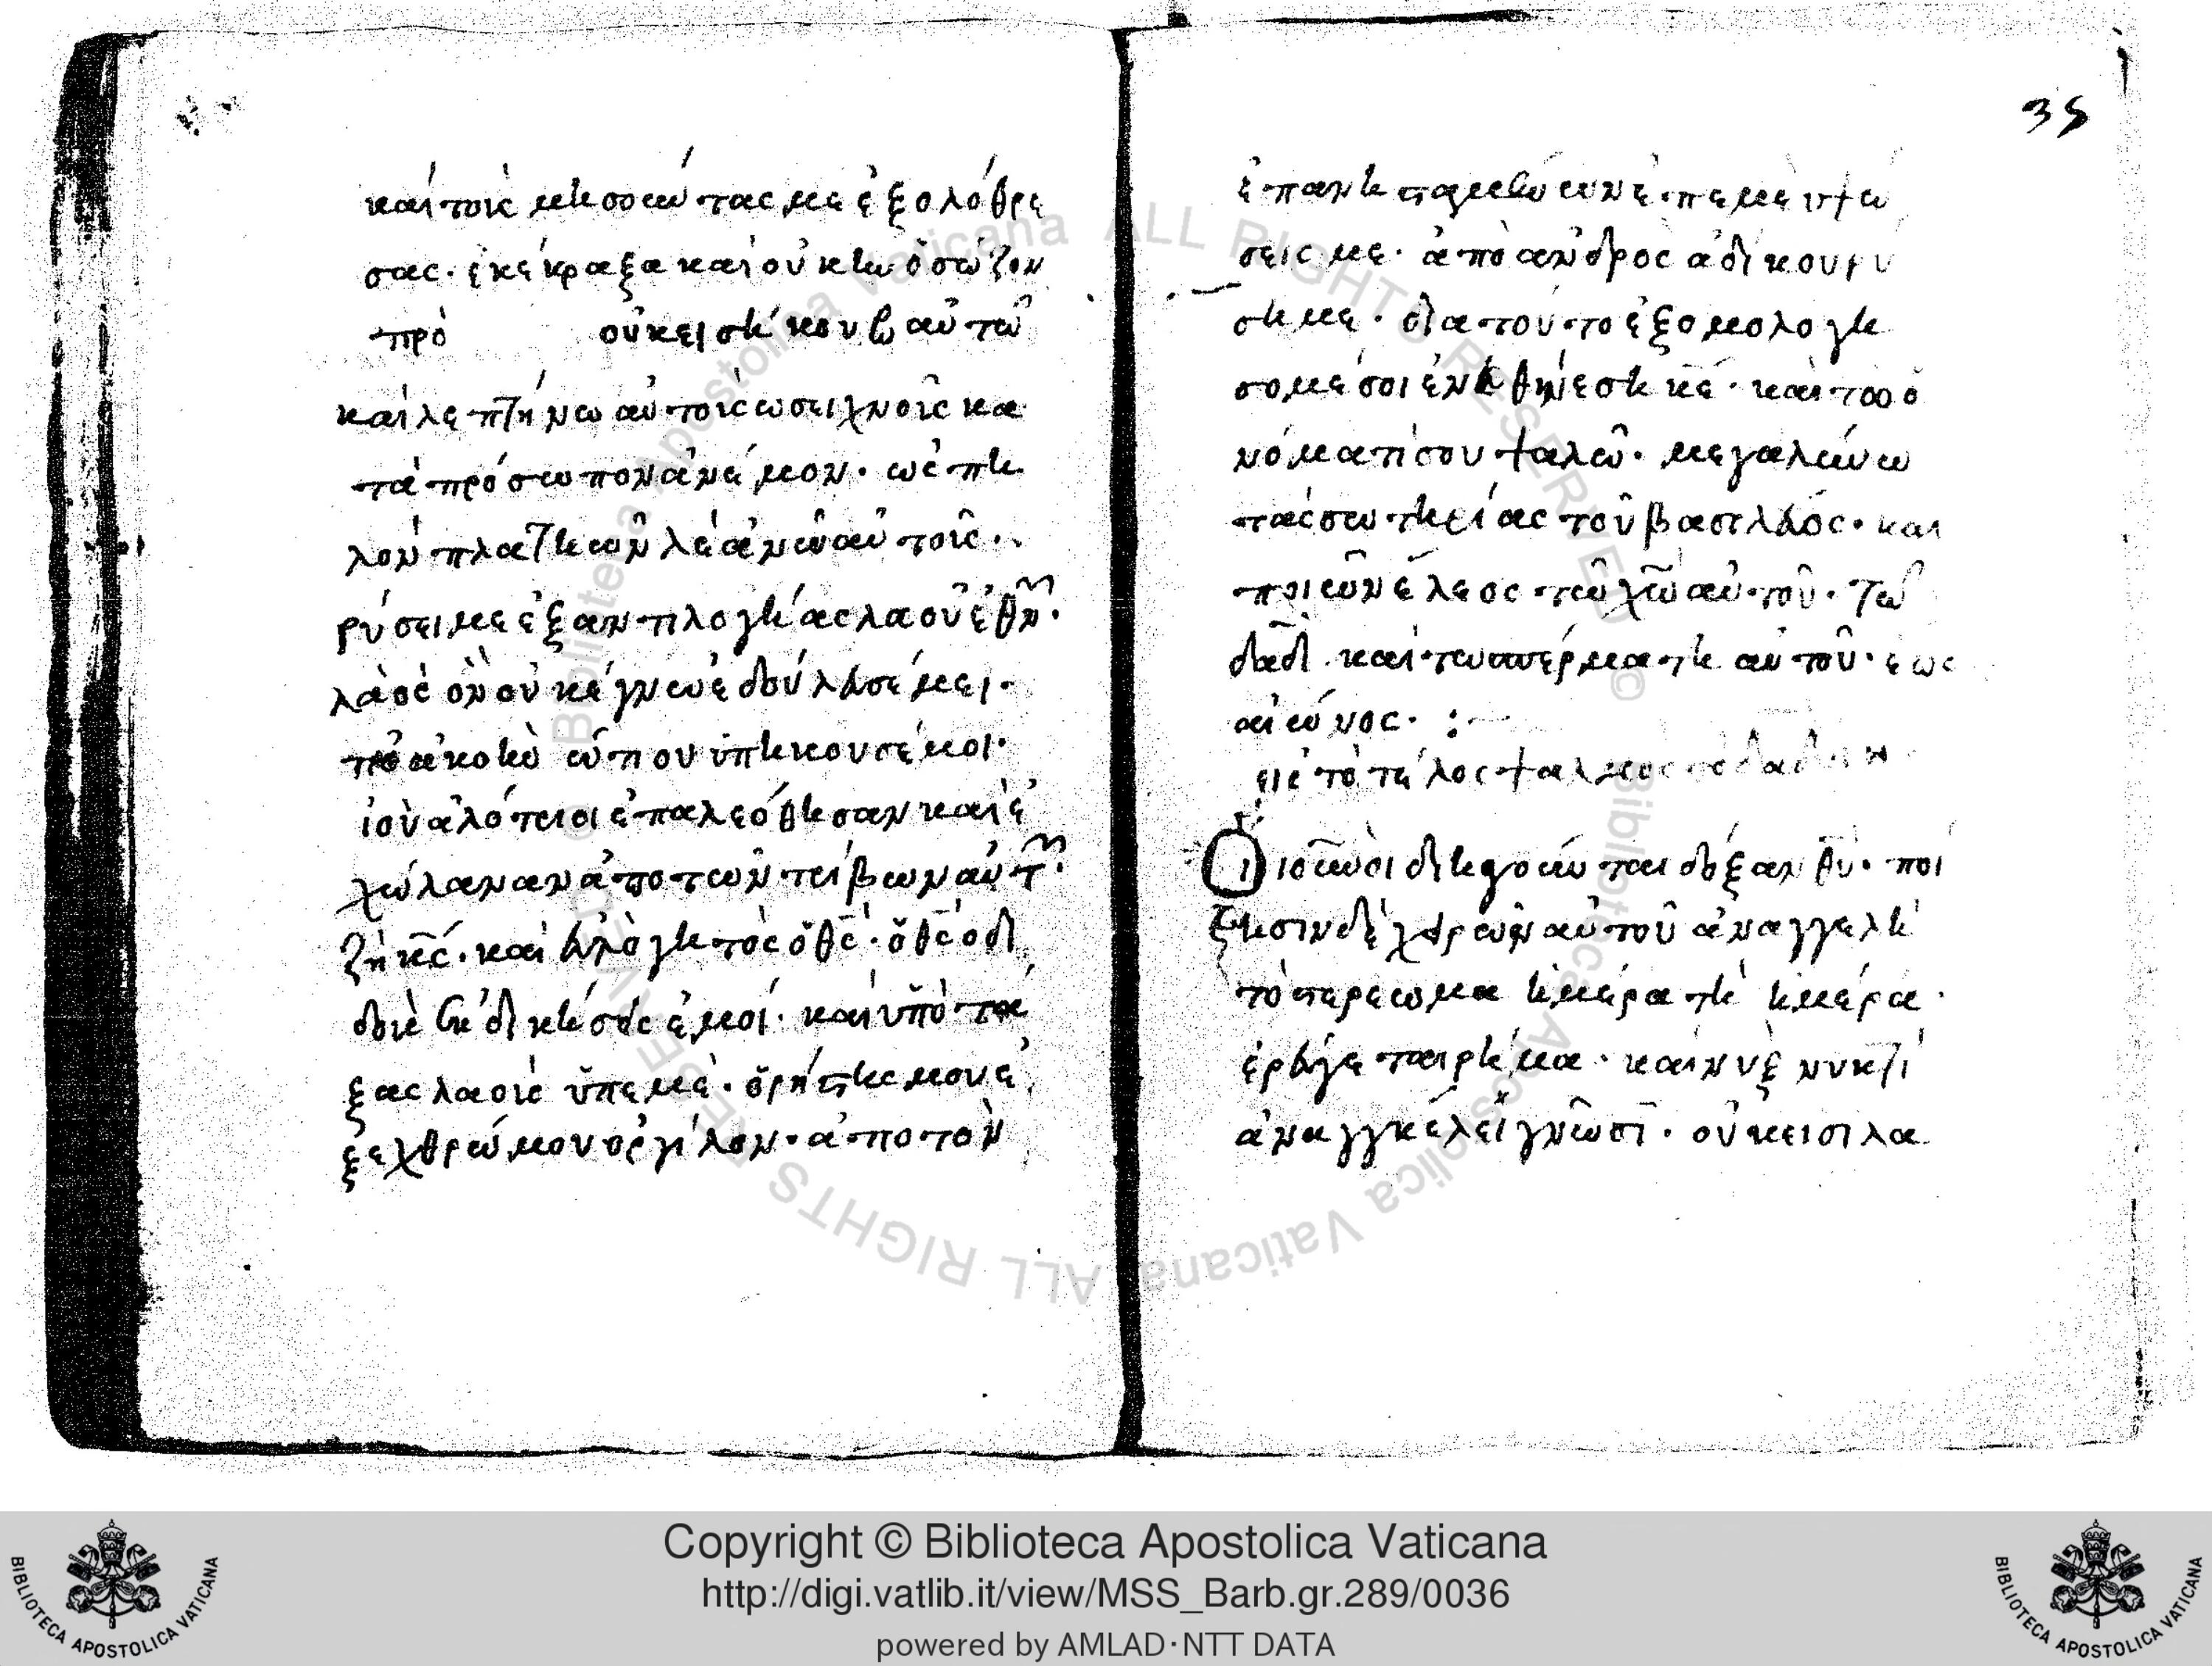 καί τοὶς μησούντας με ἐξολόθρε
σας· ἐκέκραξα καὶ οὐκ ην ὁ σώζον
πρὸ οὐκ εισήκουσ αὐτῶ
καὶ λεπτηνω αὐτοὶς ωσει χνοῖς κα
τὰ πρόσωπον ἀνέμου· ως πη
λόν πλατηων λεάνω αὐτοῖς·
ρύσει με ἐξ αντιλογήας λαοῦ ἐθν·
λαὸς ὸν οὐκ έγνων ἐδούλευσέ μει·
ἀκοὴν ώτιου ὑπήκουσέ μοι·
ἐπαλεόθησαν καὶ ἐ
χώλαναν ἀπο των τρίβων αὐτ·
ζὴ κς· καὶ ευλογητὸς ὁ θς· ὁ θς ὁ δι
δοὺς εκδικήσεις ἐμοί· καὶ ὑπὸτα
ξας λαοὶς ὑπ εμέ· ὁ ρήστης μου ἐ
ξ εχθρών μου οργίλον· ἀπο τον
35
ἐπανισταμένων ἐπ εμέ υψώ
σεις με· ἀπὸ ανδρὸς ἀδίκου ρυ
σῃ με· δια τούτο ἐξομολογη
σομέ σοι ἐν έθνεση κε· καὶ τοο ὀ
νόματί σου ψαλῶ· μεγαλύνω
τὰς σωτηρίας τοῦ βασιλέος· και
ποιῶν έλεος τῶ χω αὐτοῦ· τω
δαδ καὶ τω σπέρματη αὐτοῦ· εως
αιώνος· :
εις τὸ τέλος ψαλμος
Οι ιουνοὶ διηγούνται δόξαν θυ· ποί
ησιν δὲ χειρῶν αὐτοῦ ἀναγγελη
τὸ στερέωμα ημέρα τη ημέρα·
ἐρεύγεται ρήμα· καὶ νὺξ νυκτὶ
ἀναγγκέλει γνῶσι· οὐκ εισι λα
Copyright © Biblioteca Apostolica Vaticana
http://digi.vatlib.it/view/MSS_Barb.gr.289/0036
powered by AMLAD·NTT DATA
BIBLIOTECA APOSTOLICA VATICANA
BIBLIOTECA APOSTOLICA VATICANA